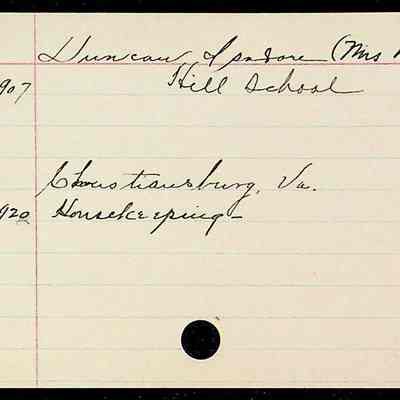 Duncan, Isadore (Mrs
907 Hill School
Christiansburg, Va.
920 Housekeeping